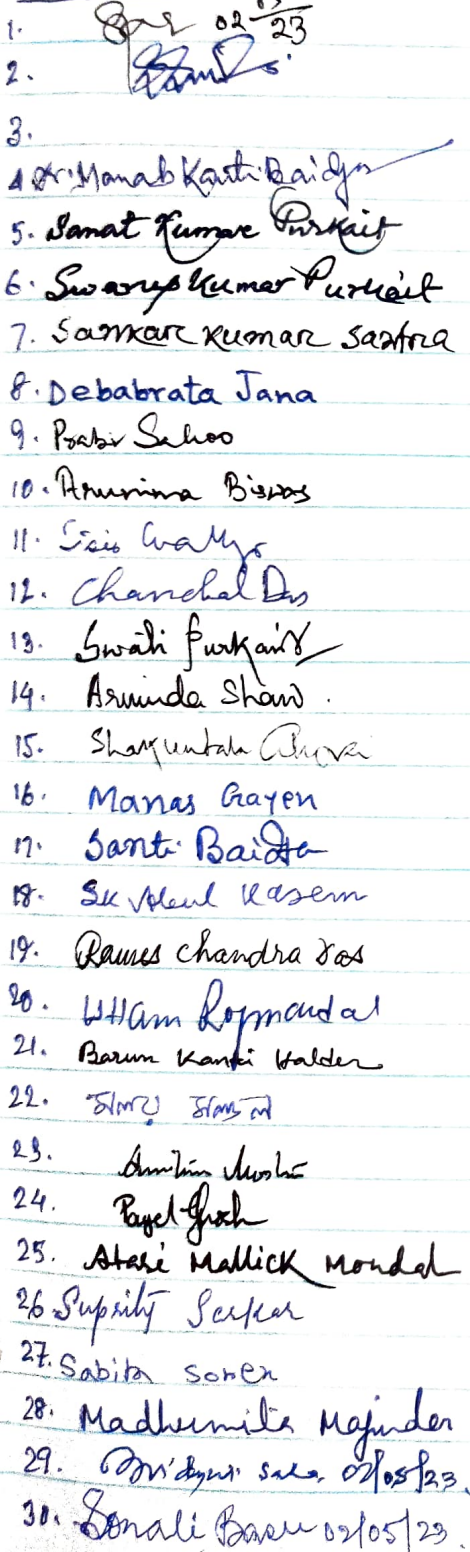 1. 02 23
2.
3.
4 Dr. Manab Kanti Baidya
5. Sanat Kumar Purkait
6. Swarup Kumar Purkait
7. Sankar Kumar Santra
8. Debabrata Jana
9. Prabir Sahoo
10. Arunima Biswas
11.
12. Chanchal Das
13. Swati Purkait
14. Arvinda Shaw.
15. Shakuntala
16. Manas Gayen
17. Santi Baidya
18. Sk Abul Kasem
19. Rames Chandra Das
20. Uttam Roymandal
21. Barun Kanti Halder
22. মলয় মন্ডল
23.
24. Payel Ghosh
25. Atasi Mallick Mondal
26 Suprity Sarkar
27. Sabita Soren
28. Madhumita Majumder
29. Saha 02/05/23.
30. Sonali Basu 02/05/23.